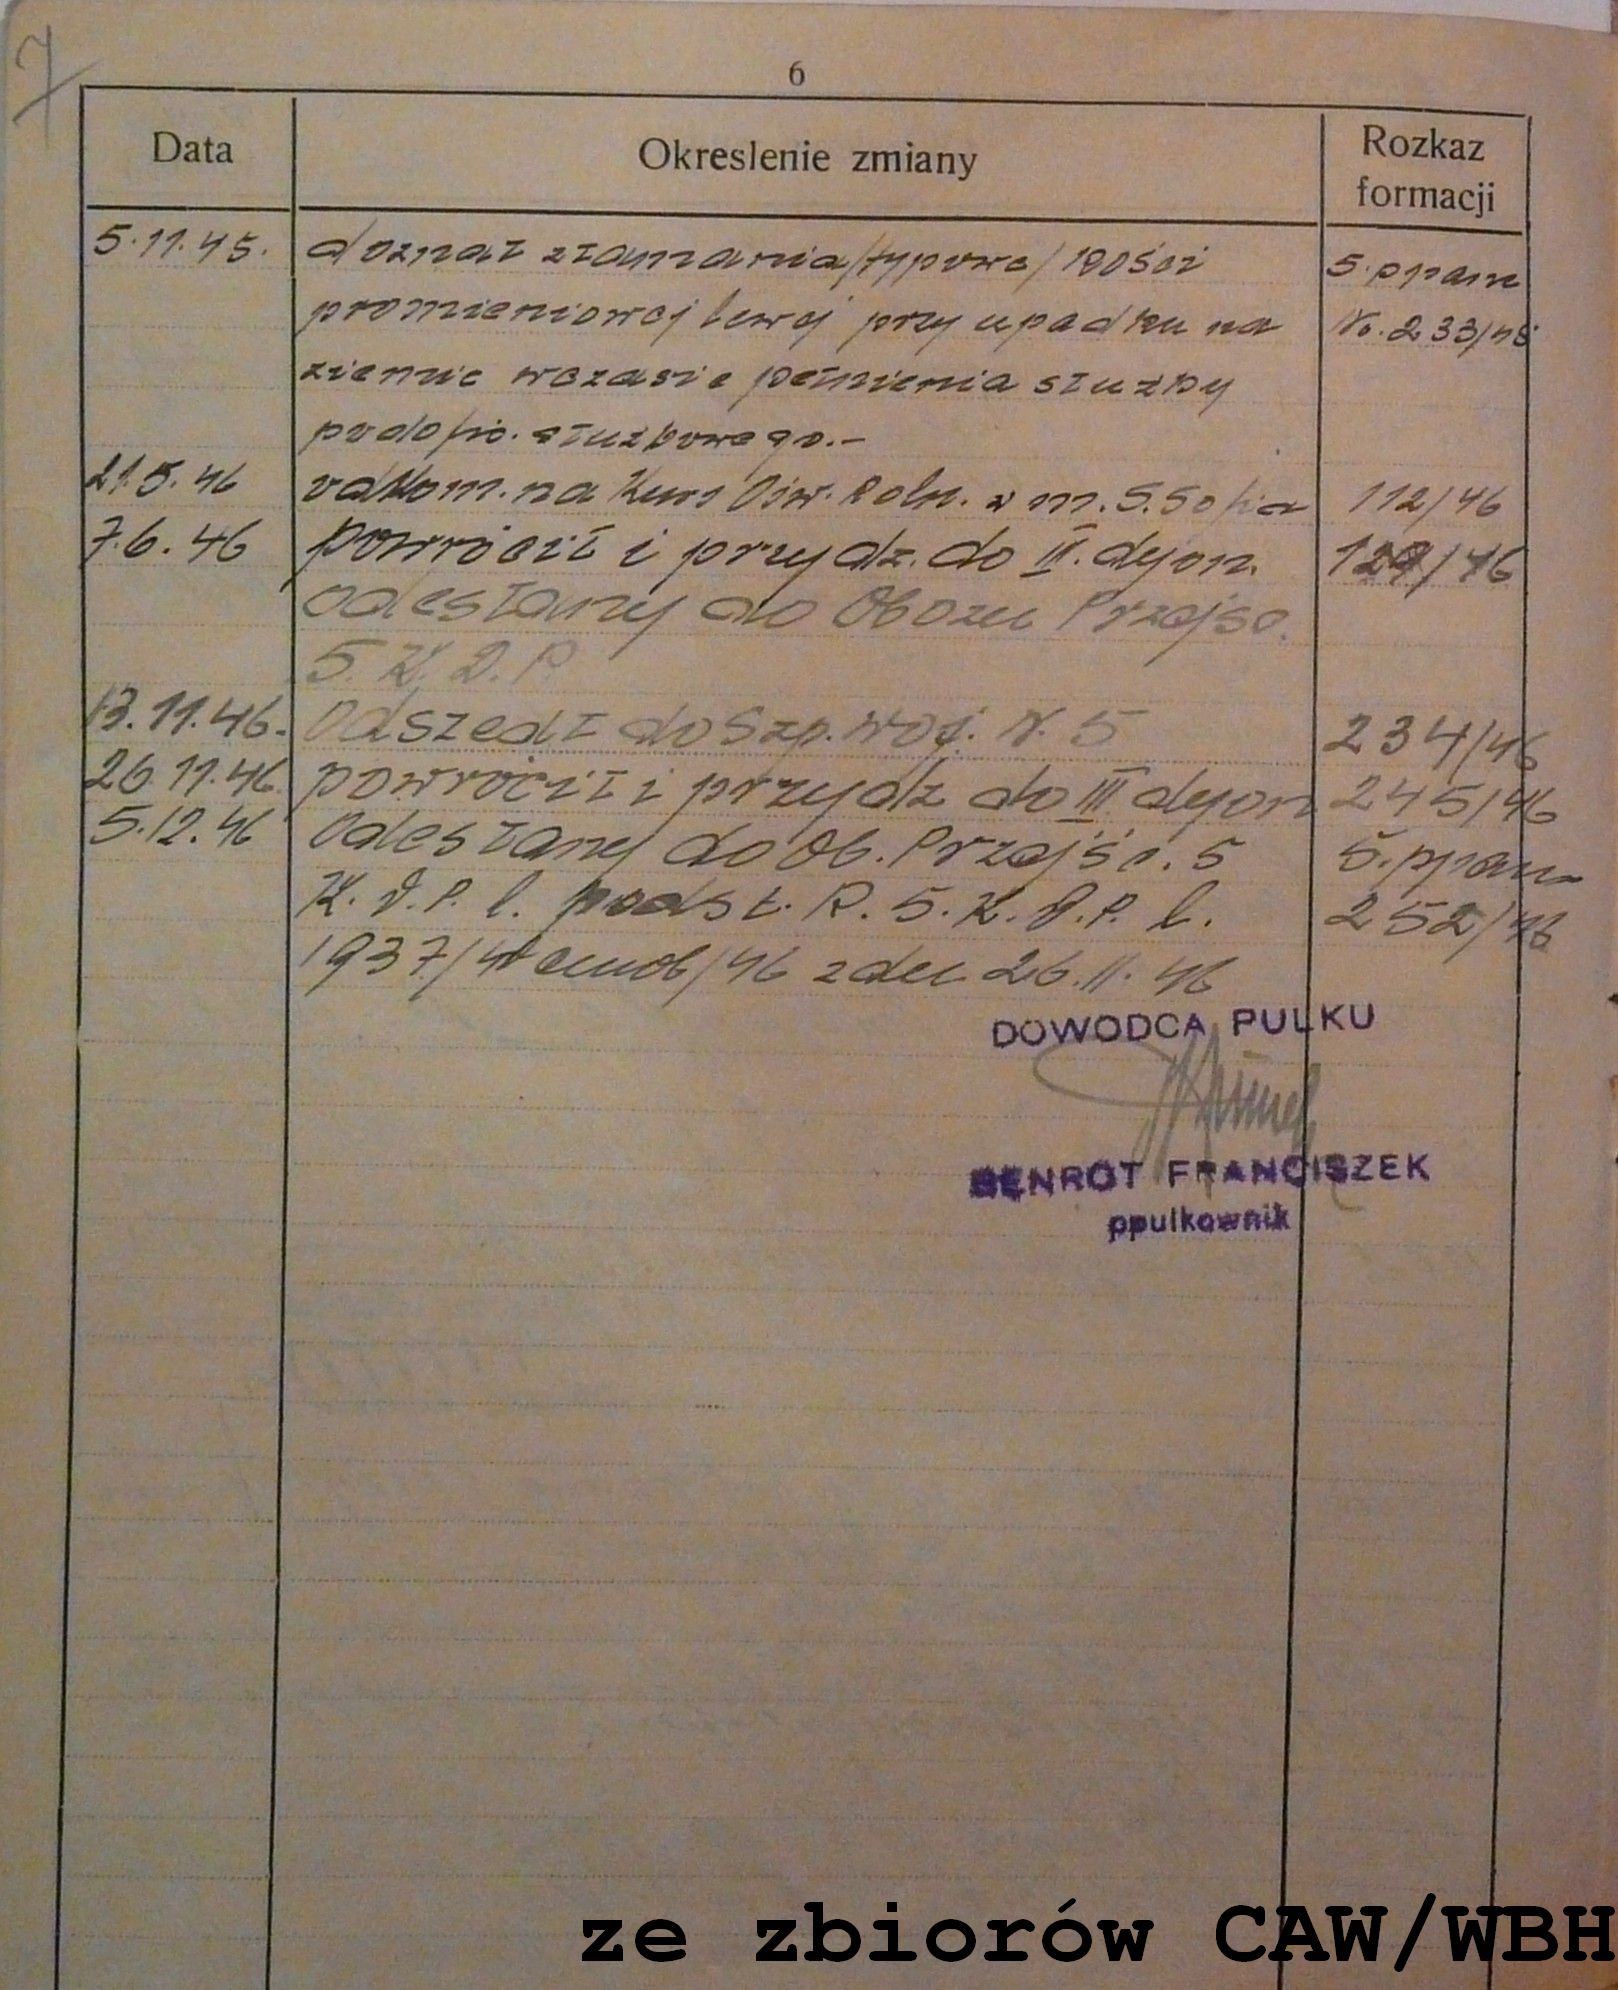 7
6
Data
Okreslenie zmiany
Rozkaz
formacji
5.11.45. doznał złamania /typowe/ kości 5. ppanc
promieniowej lewej przy upadku na No. 233/45
ziemie wczasie pełnienia służby
podofic. służbowego.-
21.5.46 odkom. na Kurs Ośw. Roln. w m. S. Sofia 112/46
7.6.46 powrócił i przydz. do II. dyon. 124/46
odesłany do Obozu Przejśc.
5. K. D. P.
13.11.46. Odszedł do Szp. Woj. N. 5 234/46
26.11.46. powrócił i przydz do III dyon 245/46
5.12.46 Odesłany do Ob. Przejśc. 5 5. ppanc
K. D. P. l. podst. R. 5. K. D. P. l. 252/46
1937/demob/46 z dn 26.11.46
DOWODCA PULKU
BENROT FRANCISZEK
ppulkownik
ze zbiorów CAW/WBH